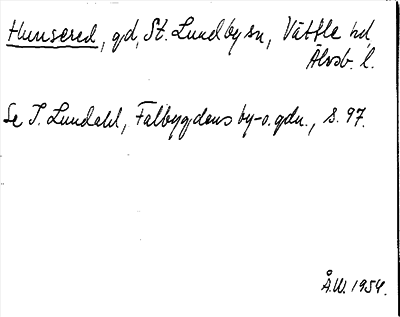 Hunsered, gd, St. Lundby sn, Vättle hd,
Älvsb. l.
Se I. Lundahl, Falbygdens by-o. gdn., s. 97.
Å.W. 1954.